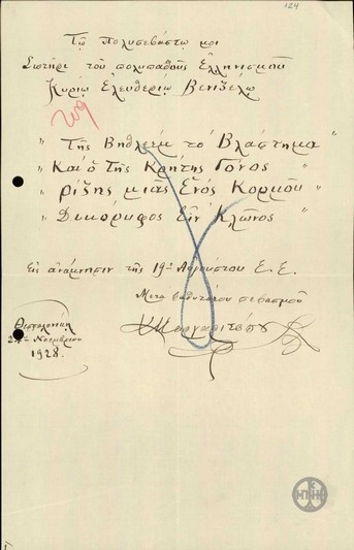 124
Τῷ Πολυσεβάστῳ μοι
Σωτῆρι τοῦ πολυπαθοῦς Ἑλληνισμοῦ
Κυρίῳ Ἐλευθερίῳ Βενιζέλῳ
209
" Τῆς Βηθλεὲμ τὸ Βλάστημα "
" Καὶ ὁ Τῆς Κρήτης Γόνος "
" Ρίζης μιᾶς Ἑνὸς Κορμοῦ "
" Δικόρυφος Εἶν' Κλῶνος "
Εἰς ἀνάμνησιν τῆς 19ης Αὐγούστου Ε.Ε.
Μετὰ βαθυτάτου σεβασμοῦ
Θεσσαλονίκη
Νοεμβρίου
1928